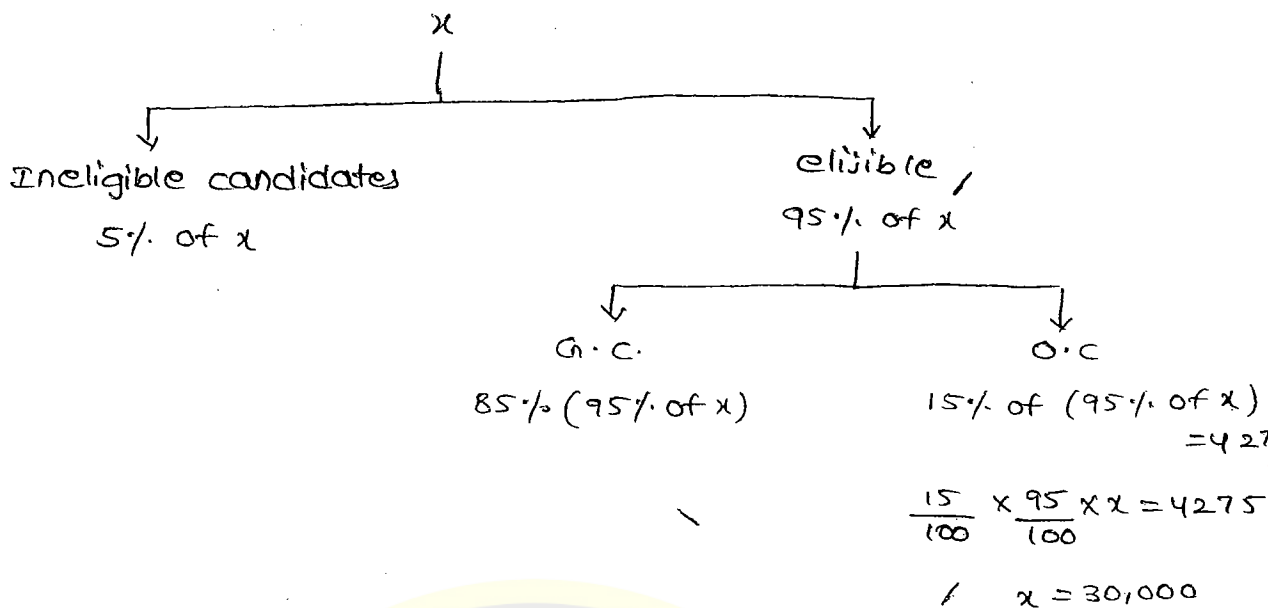 x
Ineligible candidates
5% of x
elijible
95% of x
G.C.
85% (95% of x)
O.C
15% of (95% of x)
=427
15/100 × 95/100 × x = 4275
x = 30,000